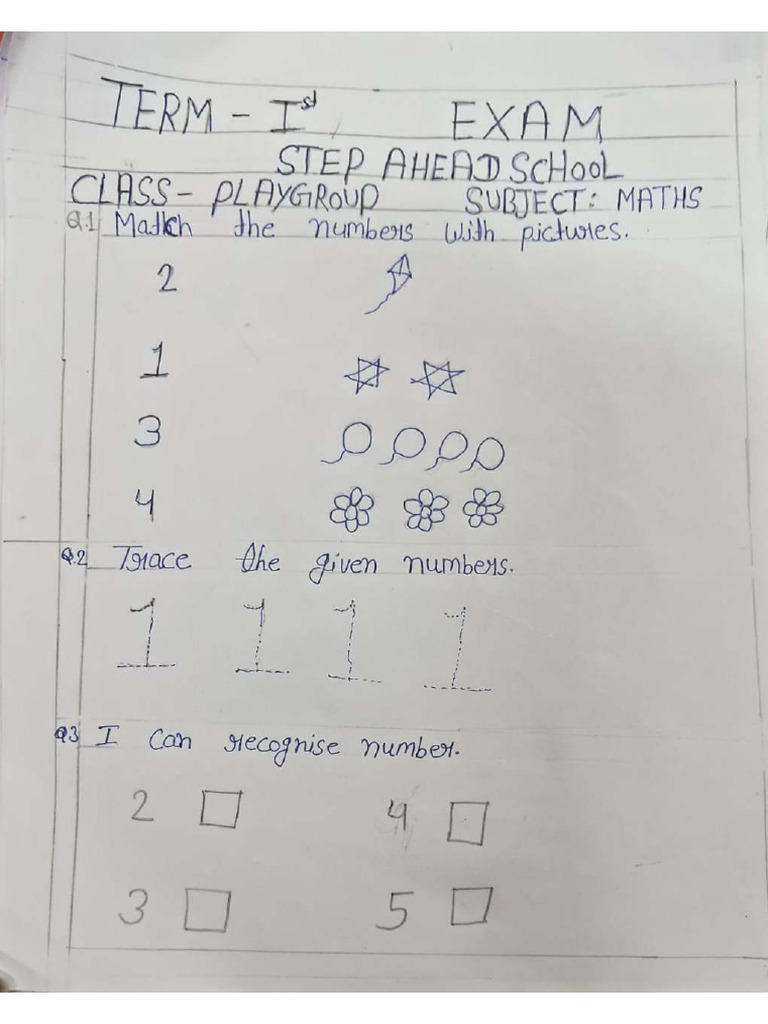 TERM - Ist EXAM
STEP AHEAD SCHOOL
CLASS - PLAYGROUP SUBJECT: MATHS
Q.1 Match the numbers with pictures.
2
1
3
4
Q.2 Trace the given numbers.
1 1 1 1
Q3 I can recognise number.
2 4
3 5